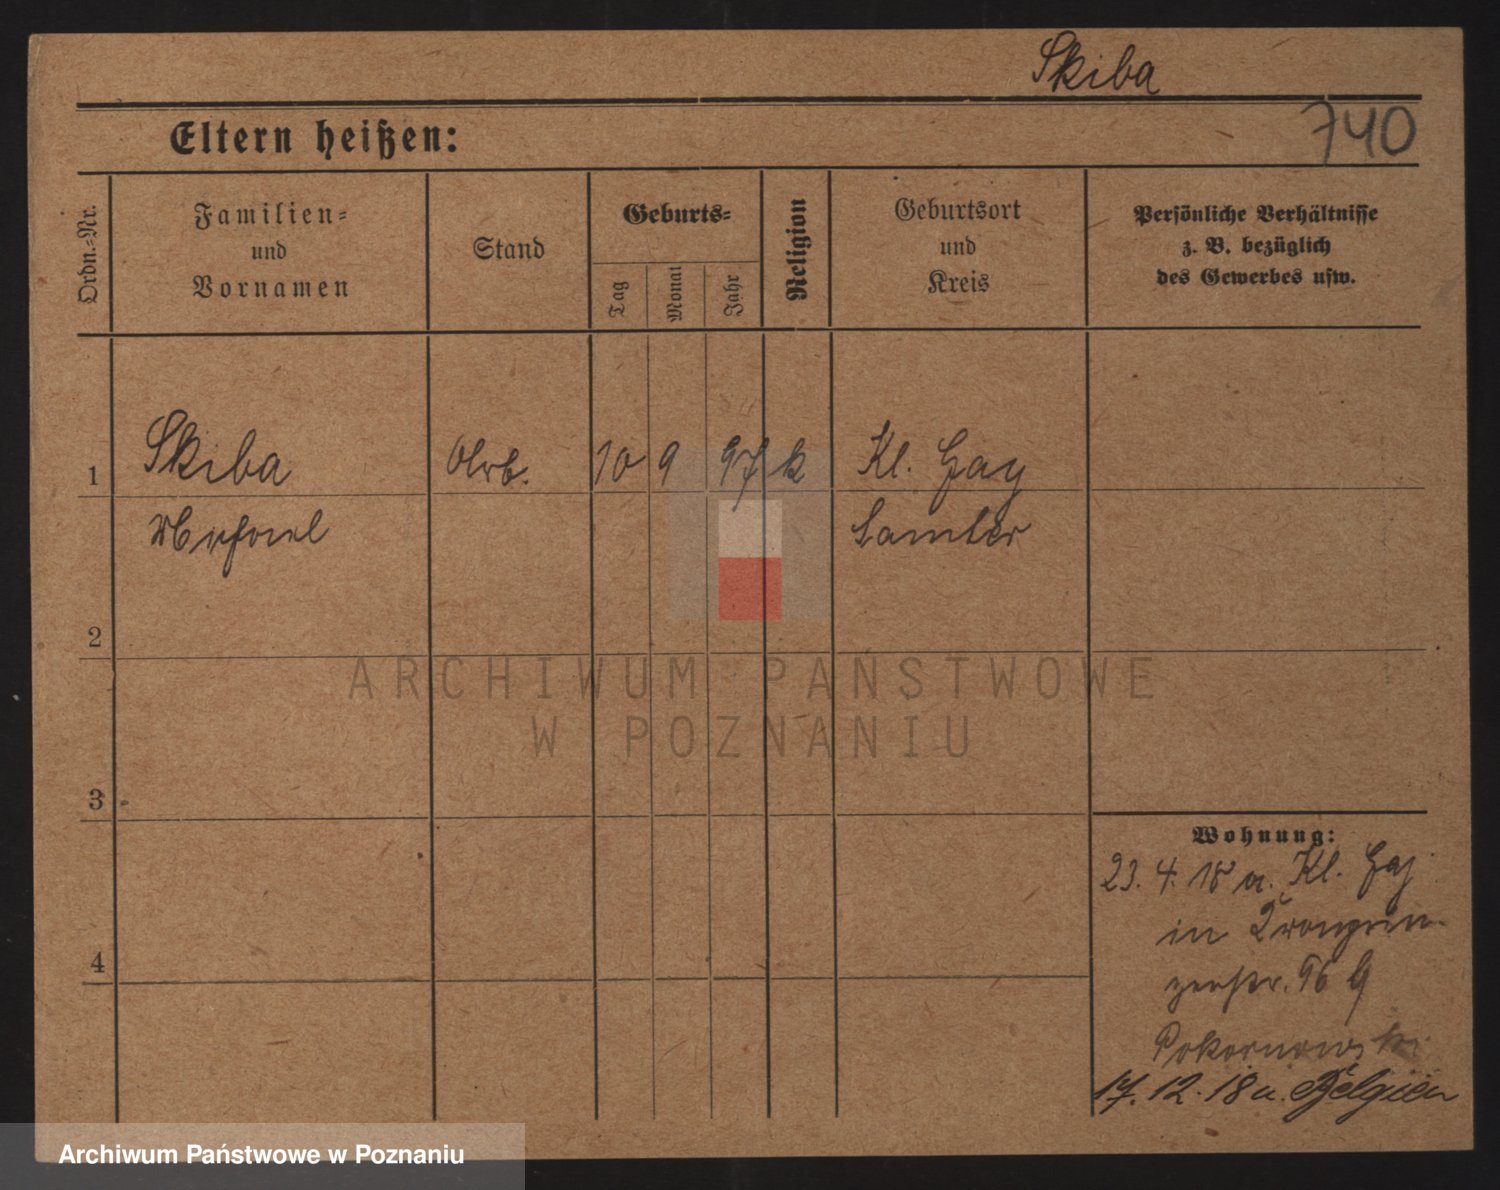 Skiba
740
Eltern heißen:
Ordn.-Nr.
Familien-
und
Vornamen
Stand
Geburts-
Tag
Monat
Jahr
Religion
Geburtsort
und
Kreis
Persönliche Verhältnisse
z. B. bezüglich
des Gewerbes usw.
1
Skiba
Arb.
10 9 97 k
Kl. Gay
Samter
2
3
4
Wohnung:
23. 4. 18 a. Kl. Gaj
in Kronprin-
zenstr. 96
Pokornowski
17. 12. 18 a. Belgien
ARCHIWUM PAŃSTWOWE
W POZNANIU
Archiwum Państwowe w Poznaniu